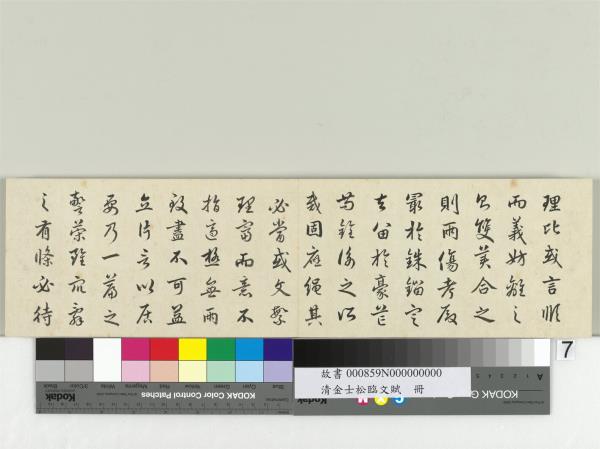 理比或言順
而義妨離之
則雙美合之
則兩傷考殿
最於銖錙定
去留於豪芒
苟銓衡之所
裁固應繩其
必當或文繁
理富而意不
指適極無兩
致盡不可益
立片言以居
要乃一篇之
警策雖衆辭
之有條必待
7
故書 000859N000000000
清金士松臨文賦 冊
Kodak
KODAK Color Control Patches
Black
3/Color
White
Magenta
Red
Yellow
Green
Cyan
Blue
A